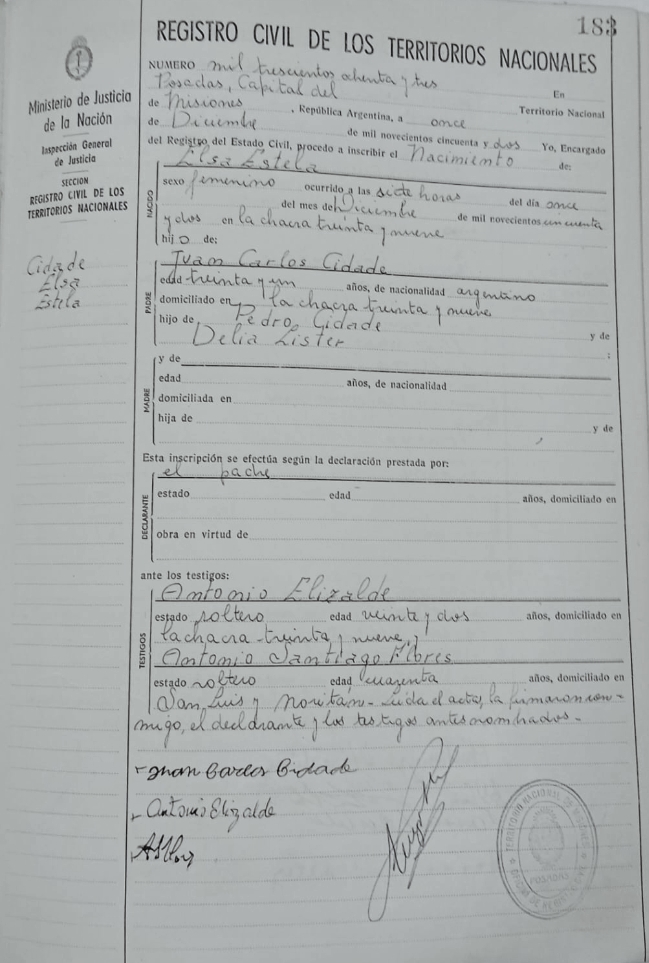 183
REGISTRO CIVIL DE LOS TERRITORIOS NACIONALES
Ministerio de Justicia
de la Nación
Inspección General
de Justicia
SECCION
REGISTRO CIVIL DE LOS
TERRITORIOS NACIONALES
Cidade
Elsa
Estela
NUMERO mil trescientos ochenta y tres En
Posadas, Capital del Territorio Nacional
de Misiones, República Argentina, a once
de Diciembre de mil novecientos cincuenta y dos Yo, Encargado
del Registro del Estado Civil, procedo a inscribir el Nacimiento de:
Elsa Estela
NACIDO
sexo femenino ocurrido a las siete horas del día once
del mes de Diciembre de mil novecientos cincuenta
y dos en la chacra treinta y nueve
hijo de:
Juan Carlos Cidade
PADRE
edad treinta y un años, de nacionalidad argentino
domiciliado en la chacra treinta y nueve
hijo de Pedro Cidade y de
Delia Lister :
MADRE
y de
edad años, de nacionalidad
domiciliada en
hija de y de
Esta inscripción se efectúa según la declaración prestada por:
el padre
DECLARANTE
estado edad años, domiciliado en
obra en virtud de
ante los testigos:
Antonio Elizalde
TESTIGOS
estado soltero edad veinte y dos años, domiciliado en
la chacra treinta y nueve, y
Antonio Santiago Flores
estado soltero edad cuarenta años, domiciliado en
San Luis y - Leida el acta, la firmaron con-
migo, el declarante y los testigos antes nombrados.-
Juan Carlos Cidade
Antonio Elizalde